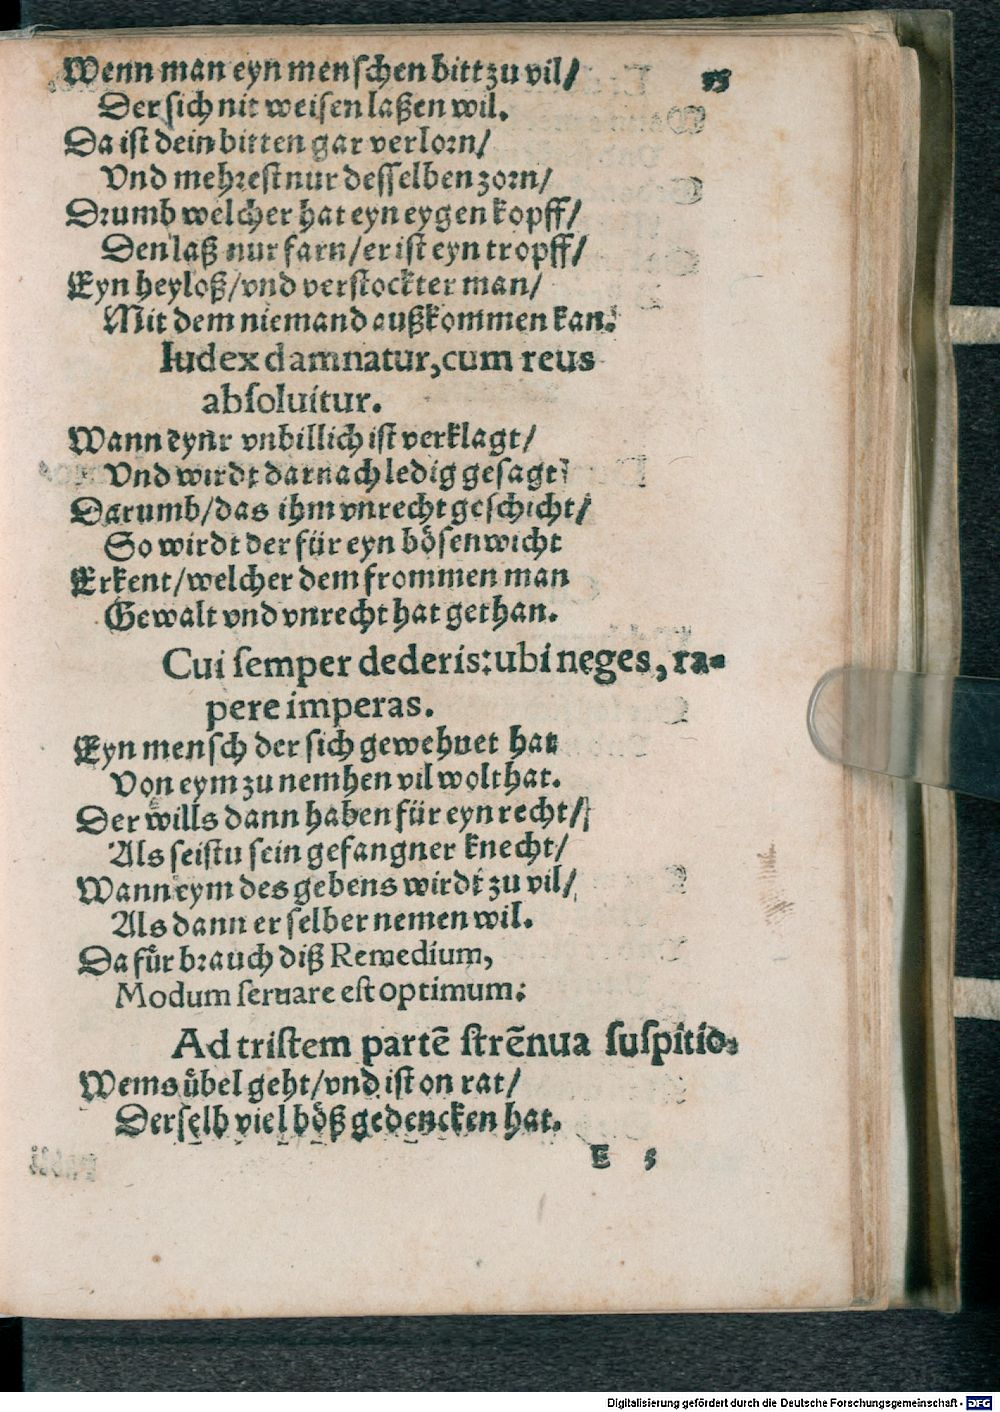 Wenn man eyn menschen bitt zu vil/
35
Der sich nit weisen laßen wil.
Da ist dein bitten gar verlorn/
Vnd mehrest nur desselben zorn/
Drumb welcher hat eyn eygen kopff/
Den laß nur farn/er ist eyn tropff/
Eyn heyloß/vnd verstockter man/
Mit dem niemand außkommen kan.
Iudex damnatur,cum reus
absoluitur.
Wann eynr vnbillich ist verklagt/
Vnd wirdt darnach ledig gesagt
Darumb/das ihm vnrecht geschicht/
So wirdt der für eyn bösenwicht
Erkent/welcher dem frommen man
Gewalt vnd vnrecht hat gethan.
Cui semper dederis:ubi neges, ra-
pere imperas.
Eyn mensch der sich gewehnet hat
Von eym zu nemhen vil wolthat.
Der wills dann haben für eyn recht/
Als seistu sein gefangner knecht/
Wann eym des gebens wirdt zu vil/
Als dann er selber nemen wil.
Da für brauch diß Remedium,
Modum seruare est optimum:
Ad tristem partē strēnua suspitio.
Wems übel geht/vnd ist on rat/
Derselb viel böß gedencken hat.
E 5
Digitalisierung gefördert durch die Deutsche Forschungsgemeinschaft - DFG